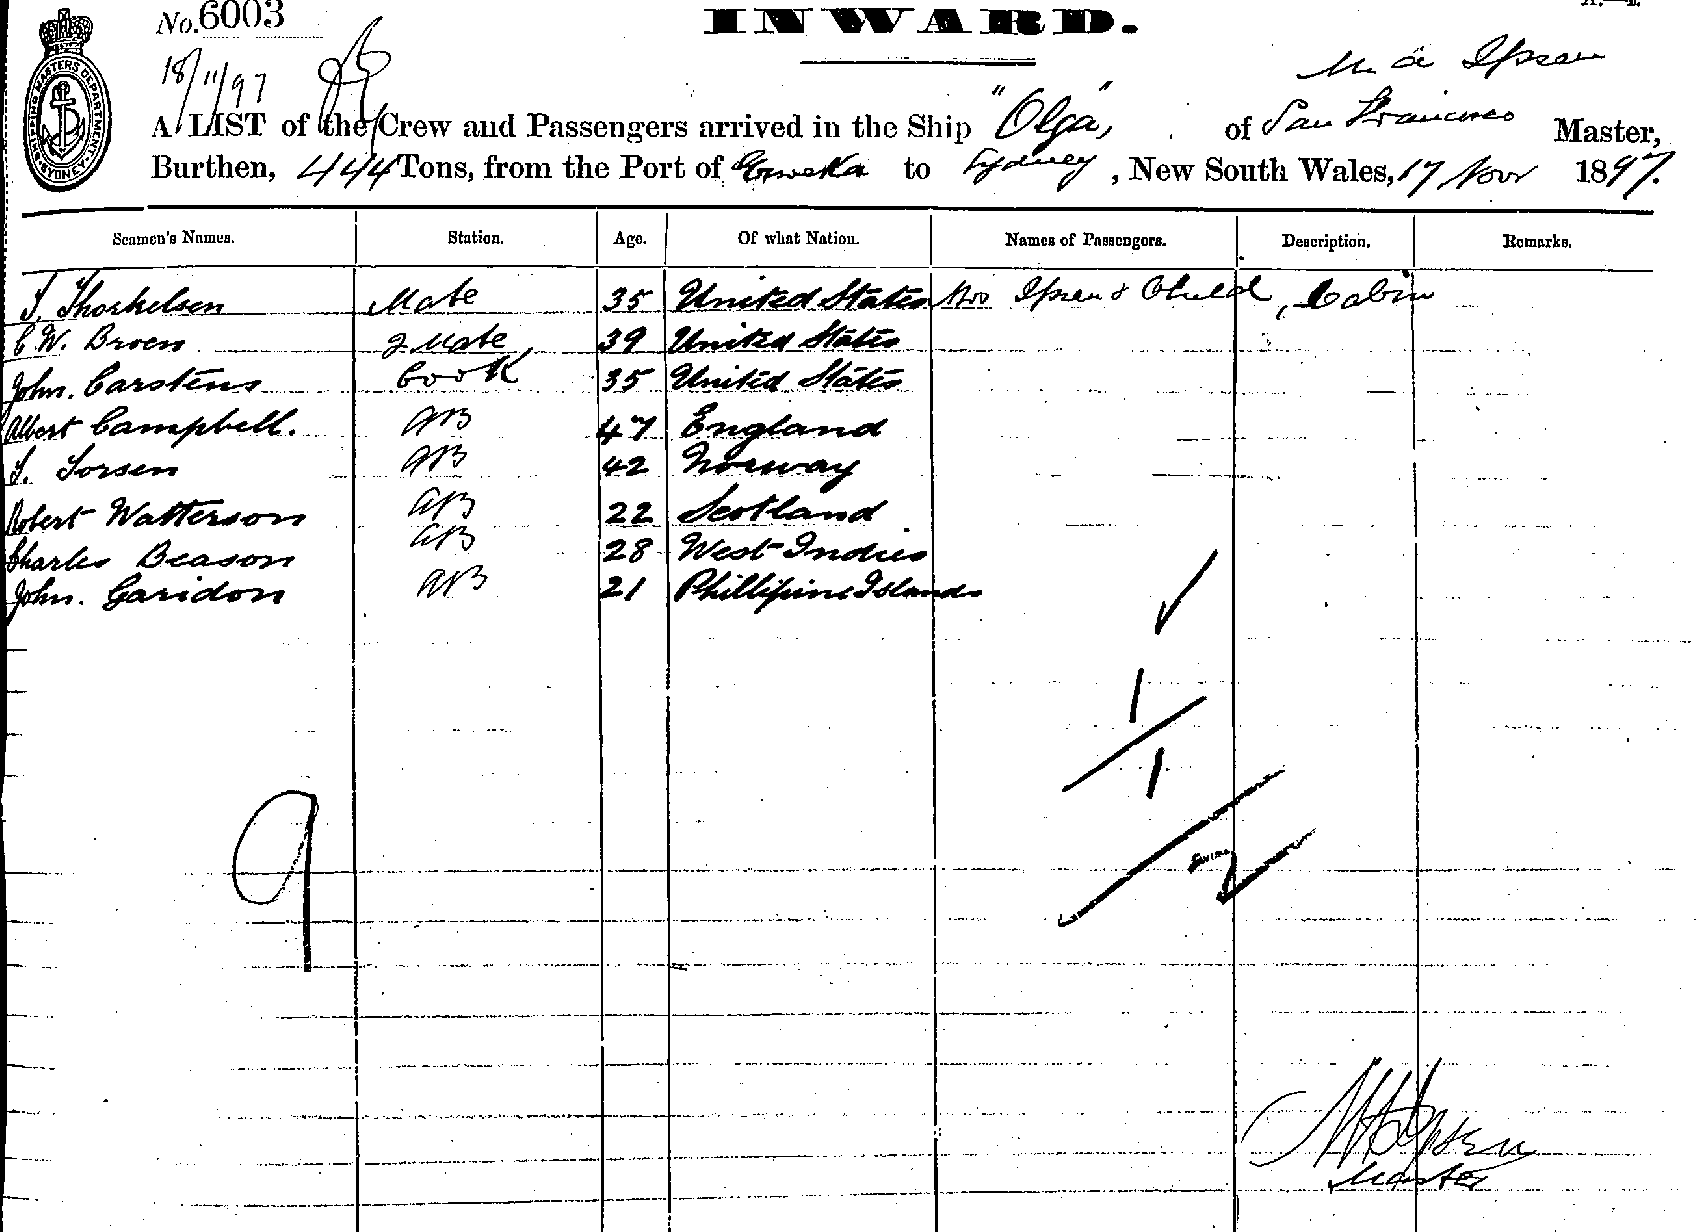 No. 6003
INWARD.
18/11/97
SHIPPING MASTERS DEPARTMENT
SYDNEY
Ipsen
A LIST of the Crew and Passengers arrived in the Ship "Olga", of San Francisco Master,
Burthen, 444 Tons, from the Port of to Sydney, New South Wales, 17 Novr 1897.
Seamen's Names. Station. Age. Of what Nation. Names of Passengers. Description. Remarks.
T. Thorkelsen Mate 35 United States Mrs Ipsen & Child, Cabin
C. W. Broen 2 Mate 39 United States
John. Carstens Cook 35 United States
Albert Campbell. AB 47 England
AB 42 Norway
Robert Watterson AB 22 Scotland
Charles Beason AB 28 West Indies
John. Garidon AB 21 Phillipine Islands
1
1
9
2
Ipsen
Master